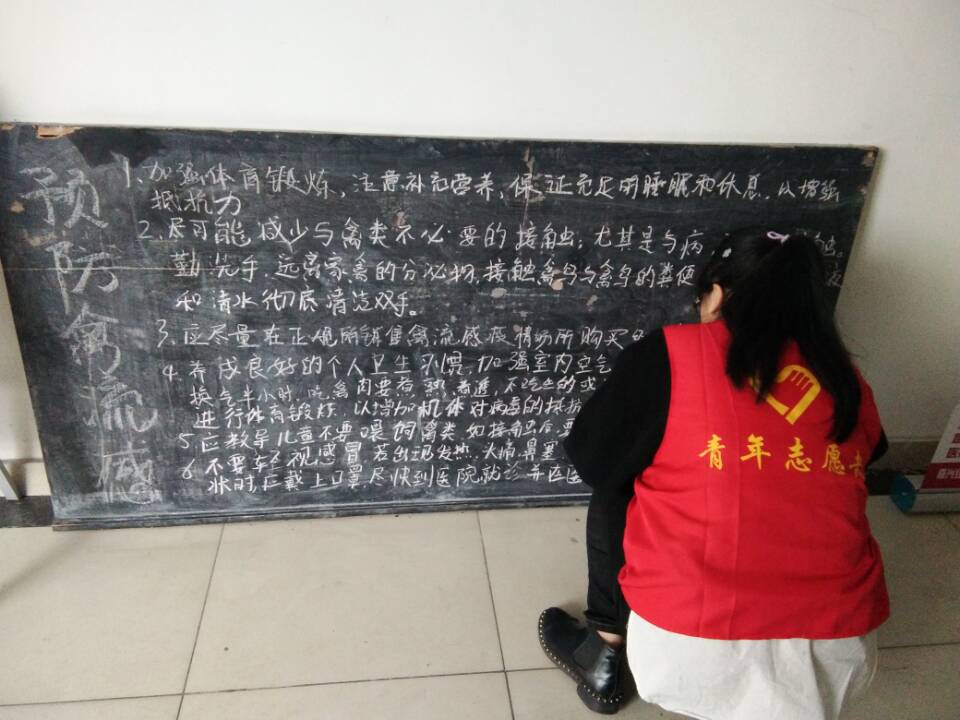 预防禽流感
1、加强体育锻炼、注意补充营养，保证充足的睡眠和休息，以增强
抵抗力
2、尽可能减少与禽类不必要的接触；尤其是与病 触。
勤洗手，远离家禽的分泌物，接触禽鸟与禽鸟的粪便
和清水彻底清洁双手。
3、应尽量在正规所销售禽流感疫情场所购买
4、养成良好的个人卫生习惯，加强室内空气
换气半小时，吃禽肉要煮熟、煮透，不吃生的或
进行体育锻炼，以增加机体对病毒的抵抗
5、应教导儿童不要喂饲禽类，如接触后，要
6、不要轻视感冒，若出现发热、头痛、鼻塞
状时，应戴上口罩，尽快到医院就诊并
青年志愿